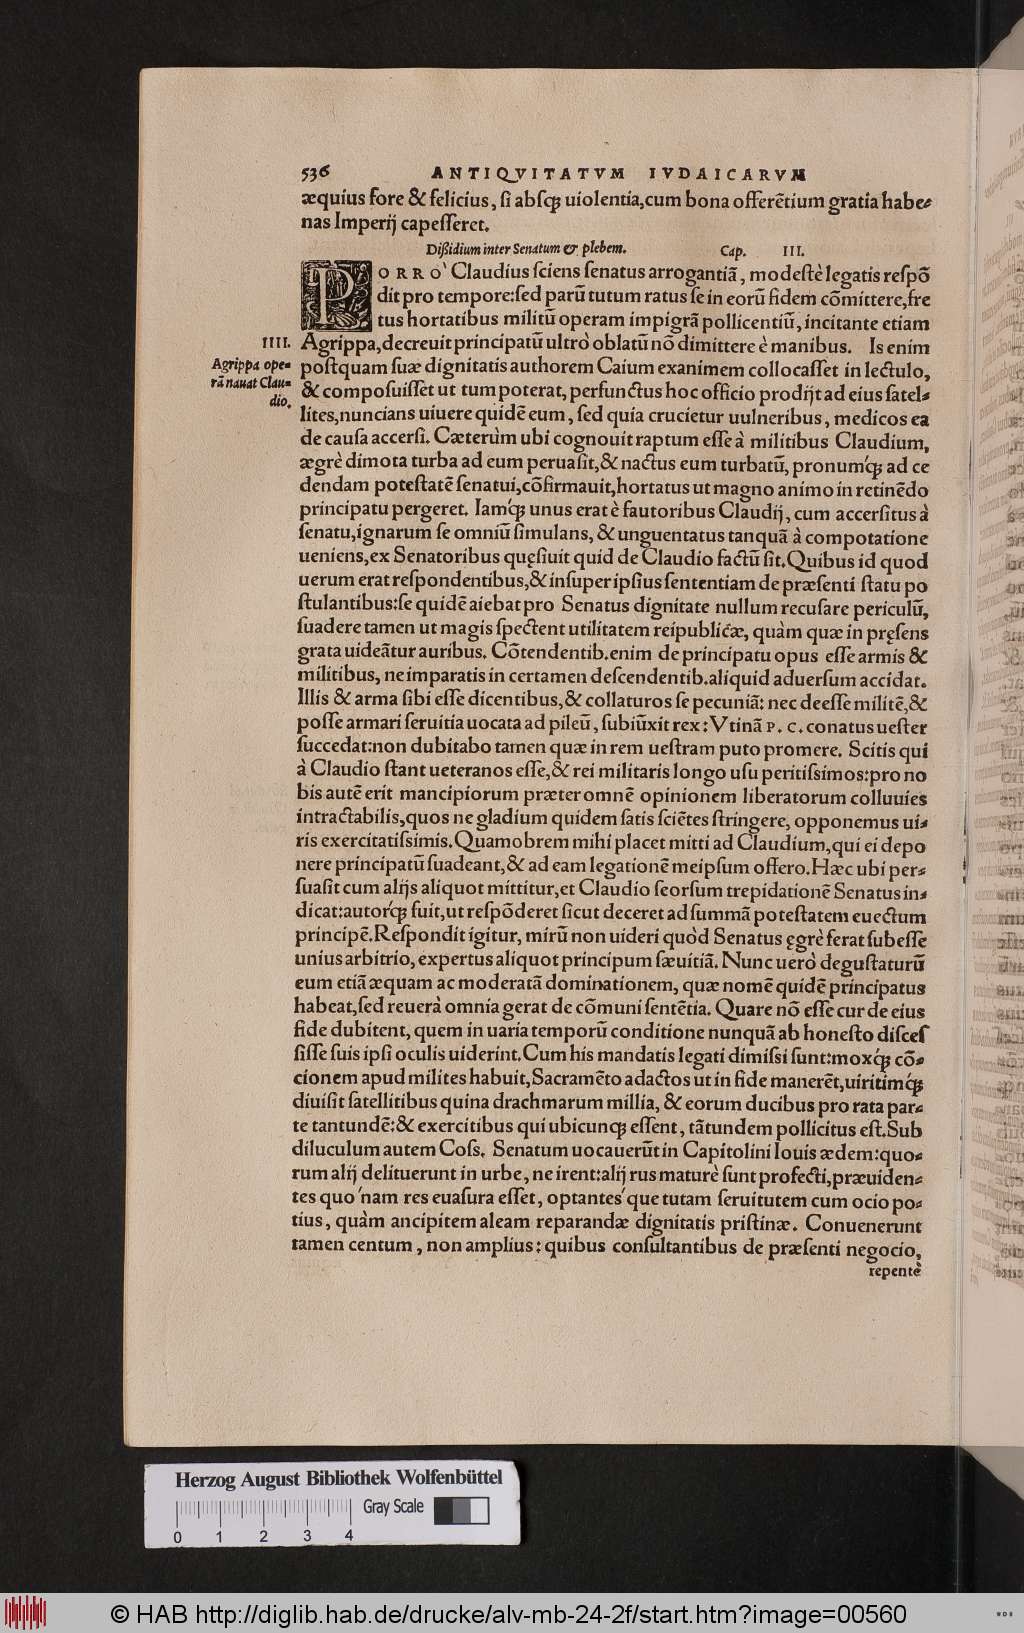 536 ANTIQVITATVM IVDAICARVM
æquius fore & felicius, ſi abſqꝫ uiolentia,cum bona offerẽtium gratia habe-
nas Imperij capeſſeret.
Diſſidium inter Senatum & plebem. Cap. III.
PORRO' Claudius ſciens ſenatus arrogantiã, modeſtè legatis reſpõ
dit pro tempore:ſed parũ tutum ratus ſe in eorũ fidem cõmittere,fre
tus hortatibus militũ operam impigrã pollicentiũ, incitante etiam
IIII.
Agrippa ope-
rã nauat Clau-
dio.
Agrippa,decreuit principatũ ultrò oblatũ nõ dimittere è manibus. Is enim
poſtquam ſuæ dignitatis authorem Caium exanimem collocaſſet in lectulo,
& compoſuiſſet ut tum poterat, perfunctus hoc officio prodijt ad eius ſatel-
lites,nuncians uiuere quidẽ eum, ſed quia crucietur uulneribus, medicos ea
de cauſa accerſi. Cæterùm ubi cognouit raptum eſſe à militibus Claudium,
ægrè dimota turba ad eum peruaſit,& nactus eum turbatũ, pronumq́ꝫ ad ce
dendam poteſtatẽ ſenatui,cõfirmauit,hortatus ut magno animo in retinẽdo
principatu pergeret. Iamq́ꝫ unus erat è fautoribus Claudij, cum accerſitus à
ſenatu,ignarum ſe omniũ ſimulans, & unguentatus tanquã à compotatione
ueniens,ex Senatoribus quęſiuit quid de Claudio factũ ſit.Quibus id quod
uerum erat reſpondentibus,& inſuper ipſius ſententiam de præſenti ſtatu po
ſtulantibus:ſe quidẽ aiebat pro Senatus dignitate nullum recuſare periculũ,
ſuadere tamen ut magis ſpectent utilitatem reipublicæ, quàm quæ in pręſens
grata uideãtur auribus. Cõtendentib.enim de principatu opus eſſe armis &
militibus, ne imparatis in certamen deſcendentib.aliquid aduerſum accidat.
Illis & arma ſibi eſſe dicentibus,& collaturos ſe pecuniã: nec deeſſe militẽ,&
poſſe armari ſeruitia uocata ad pileũ, ſubiũxit rex: Vtinã P. C. conatus ueſter
ſuccedat:non dubitabo tamen quæ in rem ueſtram puto promere. Scitis qui
à Claudio ſtant ueteranos eſſe,& rei militaris longo uſu peritiſsimos:pro no
bis autẽ erit mancipiorum præter omnẽ opinionem liberatorum colluuies
intractabilis,quos ne gladium quidem ſatis ſciẽtes ſtringere, opponemus ui-
ris exercitatiſsimis.Quamobrem mihi placet mitti ad Claudium,qui ei depo
nere principatũ ſuadeant,& ad eam legationẽ meipſum offero.Hæc ubi per-
ſuaſit cum alijs aliquot mittitur,et Claudio ſeorſum trepidationẽ Senatus in-
dicat:autorq́ꝫ fuit,ut reſpõderet ſicut deceret ad ſummã poteſtatem euectum
principẽ.Reſpondit igitur, mirũ non uideri quòd Senatus ęgrè ferat ſubeſſe
unius arbitrio, expertus aliquot principum ſæuitiã. Nunc uerò deguſtaturũ
eum etiã æquam ac moderatã dominationem, quæ nomẽ quidẽ principatus
habeat,ſed reuerà omnia gerat de cõmuni ſentẽtia. Quare nõ eſſe cur de eius
fide dubitent, quem in uaria temporũ conditione nunquã ab honeſto diſceſ
ſiſſe ſuis ipſi oculis uiderint.Cum his mandatis legati dimiſsi ſunt:moxq́ꝫ cõ-
cionem apud milites habuit,Sacramẽto adactos ut in fide manerẽt,uiritimq́ꝫ
diuiſit ſatellitibus quina drachmarum millia, & eorum ducibus pro rata par-
te tantundẽ:& exercitibus qui ubicunqꝫ eſſent, tãtundem pollicitus eſt.Sub
diluculum autem Coſs. Senatum uocauerũt in Capitolini Iouis ædem:quo-
rum alij delituerunt in urbe, ne irent:alij rus maturè ſunt profecti,præuiden-
tes quo'nam res euaſura eſſet, optantes'que tutam ſeruitutem cum ocio po-
tius, quàm ancipitem aleam reparandæ dignitatis priſtinæ. Conuenerunt
tamen centum, non amplius: quibus conſultantibus de præſenti negocio,
repentè
Herzog August Bibliothek Wolfenbüttel
Gray Scale
0 1 2 3 4
© HAB http://diglib.hab.de/drucke/alv-mb-24-2f/start.htm?image=00560